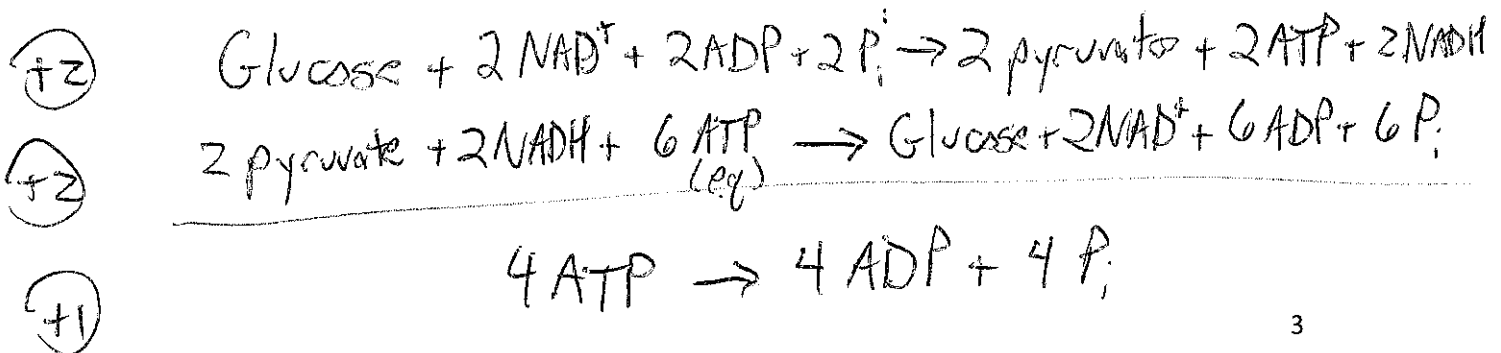 +2 Glucose + 2NAD⁺ + 2ADP + 2Pᵢ → 2 pyruvate + 2ATP + 2NADH
+2 2 pyruvate + 2NADH + 6 ATP → Glucose + 2NAD⁺ + 6 ADP + 6 Pᵢ
(eq)
+1 4 ATP → 4 ADP + 4 Pᵢ
3